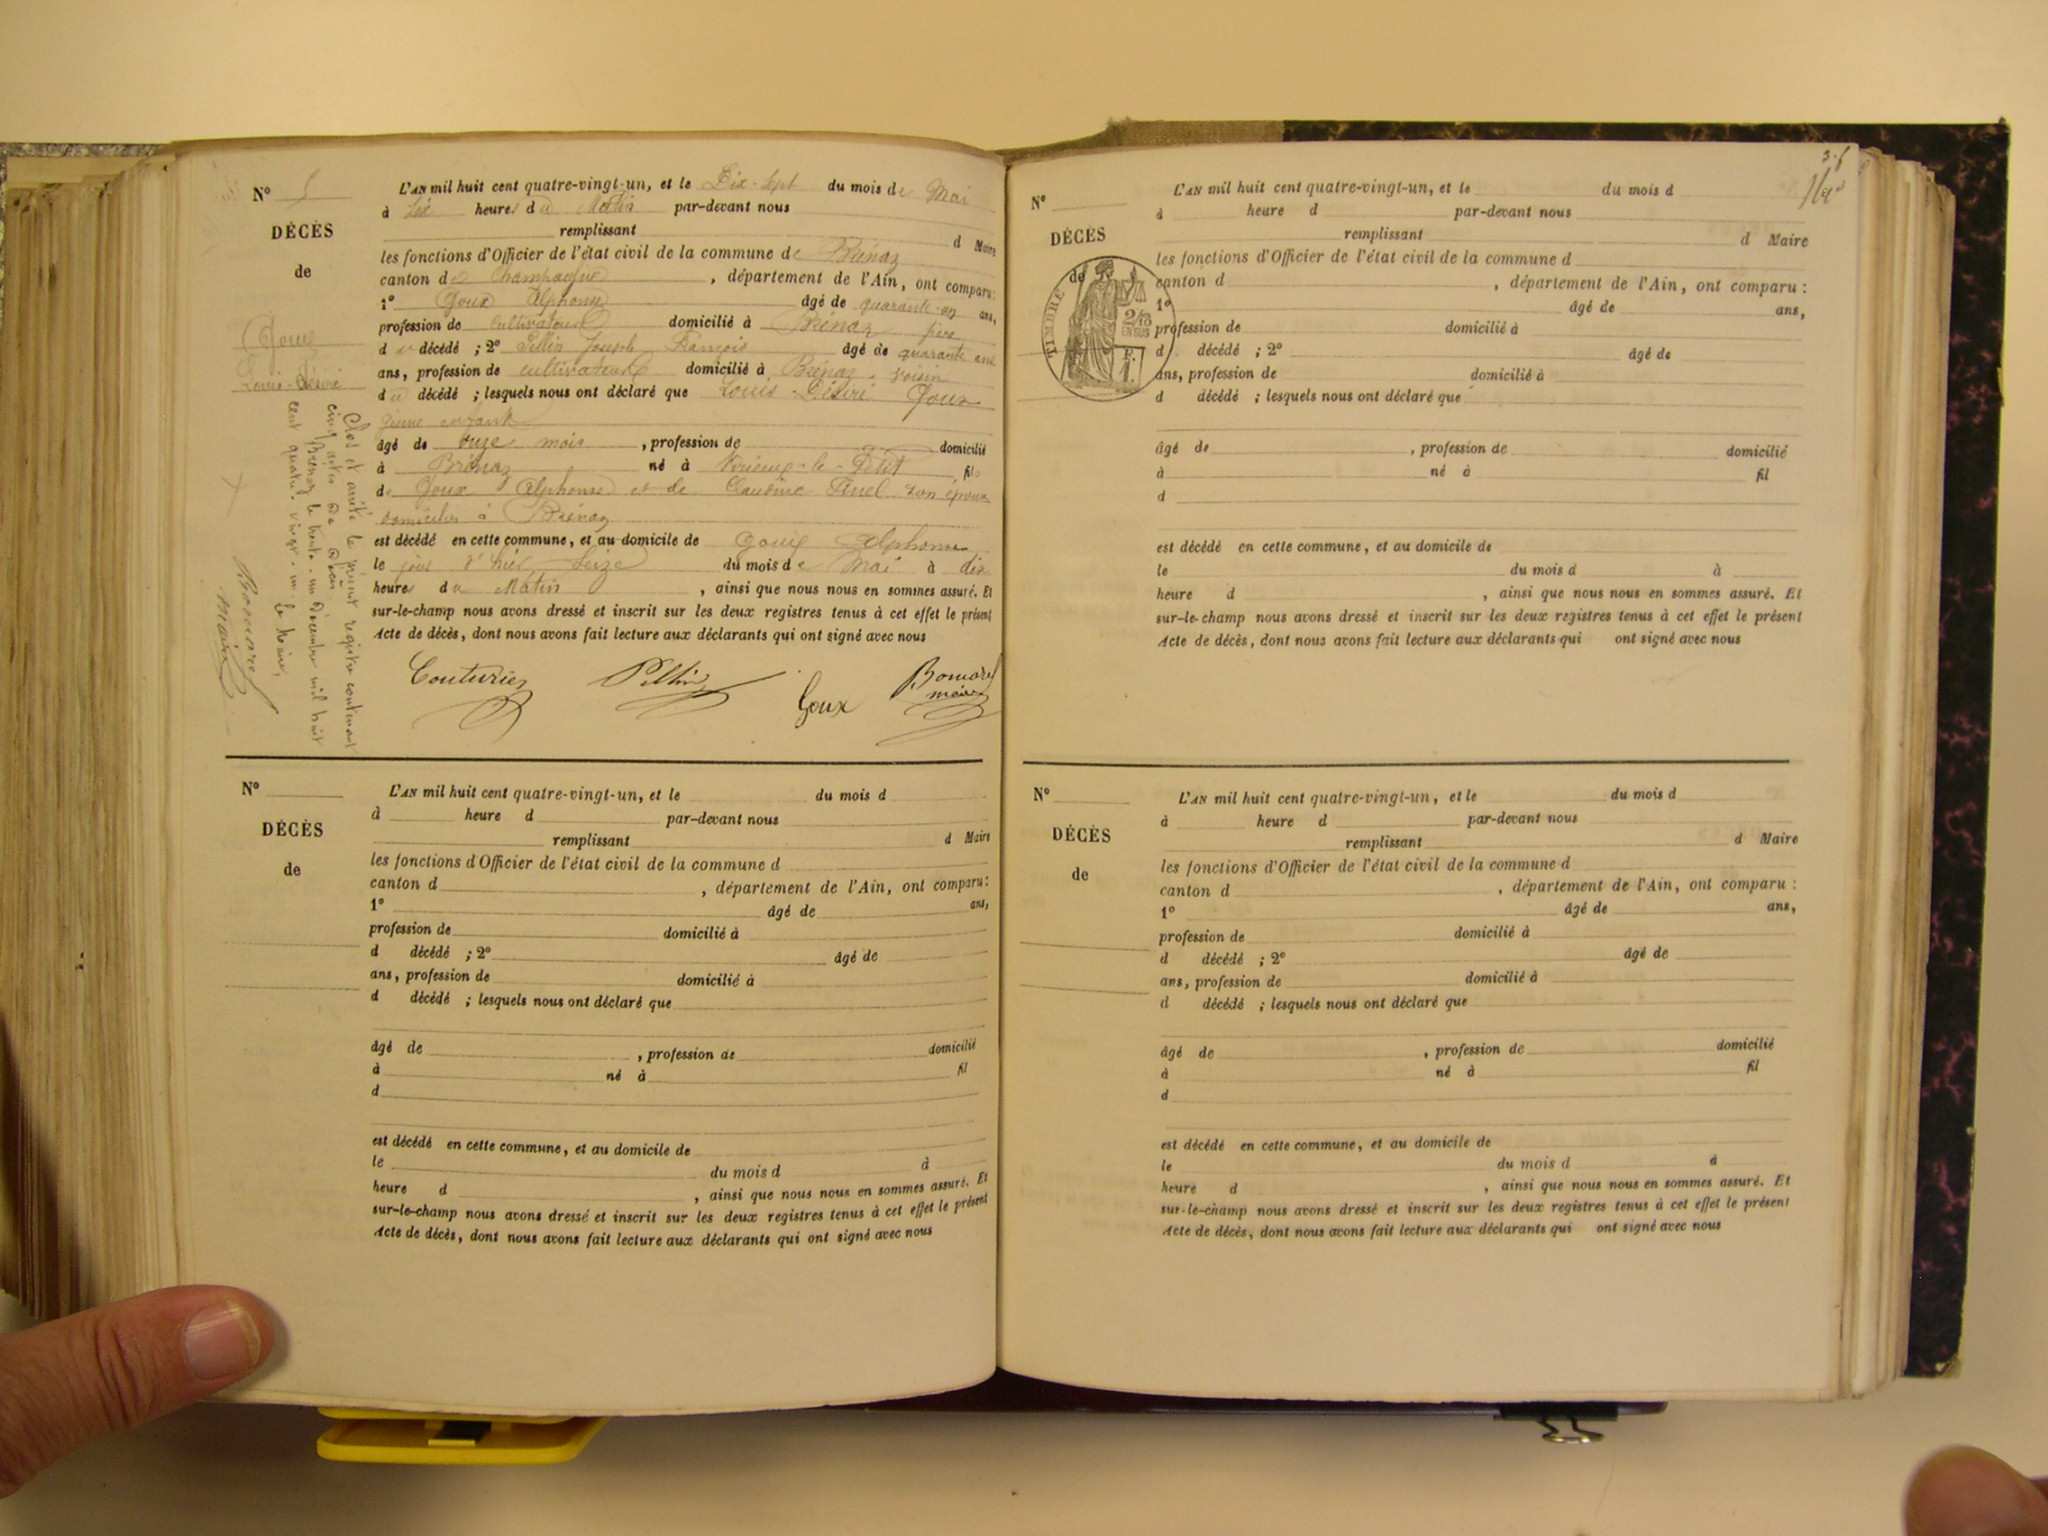 N° 5
DÉCÈS
de
Goux
Louis-Désiré
L'AN mil huit cent quatre-vingt-un, et le Dix-sept du mois de Mai
à six heures du Matin par-devant nous
remplissant d Maire
les fonctions d'Officier de l'état civil de la commune de Brénaz
canton de Champagne, département de l'Ain, ont comparu:
1° Goux Alphonse âgé de quarante-un ans,
profession de cultivateur domicilié à Brénaz père
du décédé ; 2° Pillin Joseph François âgé de quarante une
ans, profession de cultivateur domicilié à Brénaz voisin
du décédé ; lesquels nous ont déclaré que Louis-Désiré Goux
jeune enfant
âgé de onze mois, profession de domicilié
à Brénaz né à Virieux-le-Petit fils
de Goux Alphonse et de Claudine Pinel son épouse
domiciliés à Brénaz
est décédé en cette commune, et au domicile de Goux Alphonse
le jour d'hier seize du mois de Mai à dix
heures du Matin, ainsi que nous nous en sommes assuré. Et
sur-le-champ nous avons dressé et inscrit sur les deux registres tenus à cet effet le présent
Acte de décès, dont nous avons fait lecture aux déclarants qui ont signé avec nous
Couturier Pillin Goux Bonnard
maire
Clos et arrêté le présent registre contenant
cinq actes de décès
Brénaz le trente-un décembre mil huit
cent quatre-vingt-un. le Maire,
Bonnard
maire
N°
DÉCÈS
de
L'AN mil huit cent quatre-vingt-un, et le du mois d
à heure d par-devant nous
remplissant d Maire
les fonctions d'Officier de l'état civil de la commune d
canton d , département de l'Ain, ont comparu:
1° âgé de ans,
profession de domicilié à
d décédé ; 2° âgé de
ans, profession de domicilié à
d décédé ; lesquels nous ont déclaré que
âgé de , profession de domicilié
à né à fil
d
est décédé en cette commune, et au domicile de
le du mois d à
heure d , ainsi que nous nous en sommes assuré. Et
sur-le-champ nous avons dressé et inscrit sur les deux registres tenus à cet effet le présent
Acte de décès, dont nous avons fait lecture aux déclarants qui ont signé avec nous
N°
DÉCÈS
de
TIMBRE
2/10
EN SUS
F.
1.
L'AN mil huit cent quatre-vingt-un, et le du mois d
à heure d par-devant nous
remplissant d Maire
les fonctions d'Officier de l'état civil de la commune d
canton d , département de l'Ain, ont comparu :
1° âgé de ans,
profession de domicilié à
d décédé ; 2° âgé de
ans, profession de domicilié à
d décédé ; lesquels nous ont déclaré que
âgé de , profession de domicilié
à né à fil
d
est décédé en cette commune, et au domicile de
le du mois d à
heure d , ainsi que nous nous en sommes assuré. Et
sur-le-champ nous avons dressé et inscrit sur les deux registres tenus à cet effet le présent
Acte de décès, dont nous avons fait lecture aux déclarants qui ont signé avec nous
N°
DÉCÈS
de
L'AN mil huit cent quatre-vingt-un, et le du mois d
à heure d par-devant nous
remplissant d Maire
les fonctions d'Officier de l'état civil de la commune d
canton d , département de l'Ain, ont comparu :
1° âgé de ans,
profession de domicilié à
d décédé ; 2° âgé de
ans, profession de domicilié à
d décédé ; lesquels nous ont déclaré que
âgé de , profession de domicilié
à né à fil
d
est décédé en cette commune, et au domicile de
le du mois d à
heure d , ainsi que nous nous en sommes assuré. Et
sur-le-champ nous avons dressé et inscrit sur les deux registres tenus à cet effet le présent
Acte de décès, dont nous avons fait lecture aux déclarants qui ont signé avec nous